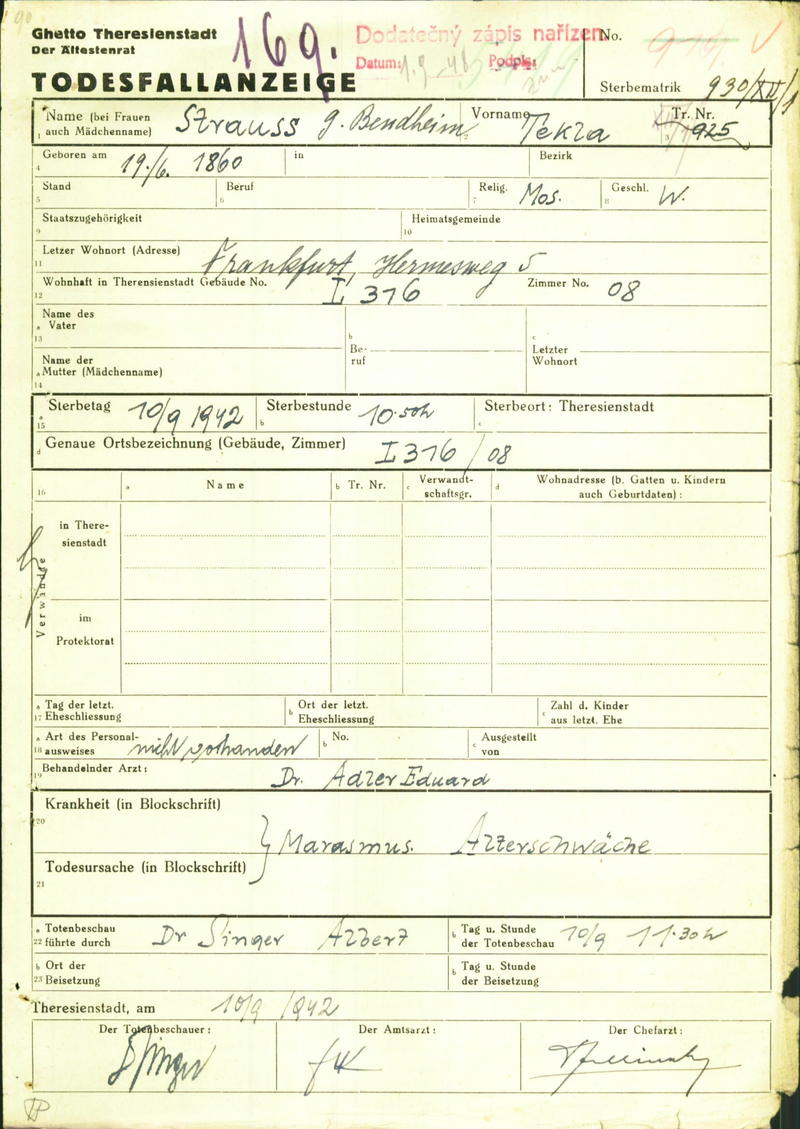 Ghetto Theresienstadt
Der Ältestenrat
169.
Dodatečný zápis nařízen
Datum: 1.9.48 Podpis:
No.
TODESFALLANZEIGE
Sterbematrik 930/XII/1
Name (bei Frauen auch Mädchenname) Strauss g. Bendheim
Vorname Tekla
Tr. Nr. 925
Geboren am 19./6. 1860 in Bezirk
Stand Beruf Relig. Mos. Geschl. W.
Staatszugehörigkeit Heimatsgemeinde
Letzer Wohnort (Adresse) Frankfurt, Hermesweg 5
Wohnhaft in Theresienstadt Gebäude No. L 316 Zimmer No. 08
Name des Vater
Beruf
Letzter Wohnort
Name der Mutter (Mädchenname)
Sterbetag 10/9 1942 Sterbestunde 10.50h Sterbeort: Theresienstadt
Genaue Ortsbezeichnung (Gebäude, Zimmer) L 316/08
Name Tr. Nr. Verwandtschaftsgr. Wohnadresse (b. Gatten u. Kindern auch Geburtdaten):
Verwandte
in Theresienstadt
im Protektorat
Tag der letzt. Eheschliessung Ort der letzt. Eheschliessung Zahl d. Kinder aus letzt. Ehe
Art des Personalausweises nicht vorhanden No. Ausgestellt von
Behandelnder Arzt: Dr. Adler Eduard
Krankheit (in Blockschrift)
Marasmus. Alterschwäche
Todesursache (in Blockschrift)
Totenbeschau führte durch Dr Singer Albert Tag u. Stunde der Totenbeschau 10/9 11.30h
Ort der Beisetzung Tag u. Stunde der Beisetzung
Theresienstadt, am 10/9 1942
Der Totenbeschauer: Der Amtsarzt: Der Chefarzt:
Singer